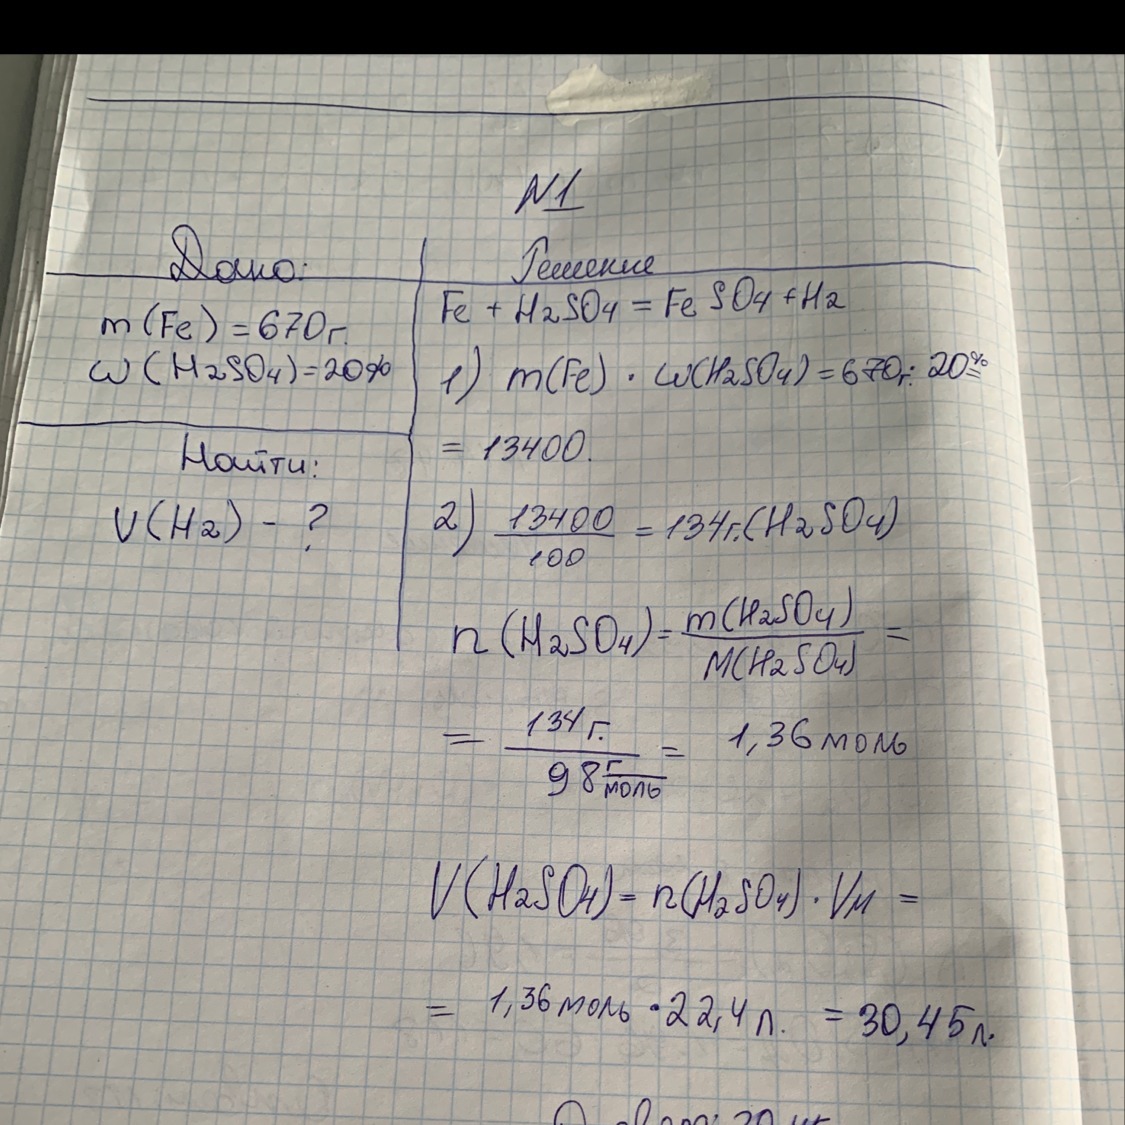 N1
Дано:
m(Fe) = 670г.
ω(H2SO4)=20%
Найти:
V(H2) - ?
Решение
Fe + H2SO4 = FeSO4 + H2
1) m(Fe) · ω(H2SO4) = 670г. · 20% =
= 13400.
2) 13400/100 = 134г.(H2SO4)
n(H2SO4) = m(H2SO4)/M(H2SO4) =
= 134г./98 г/моль = 1,36 моль
V(H2SO4) = n(H2SO4) · Vм =
= 1,36 моль · 22,4 л. = 30,45 л.